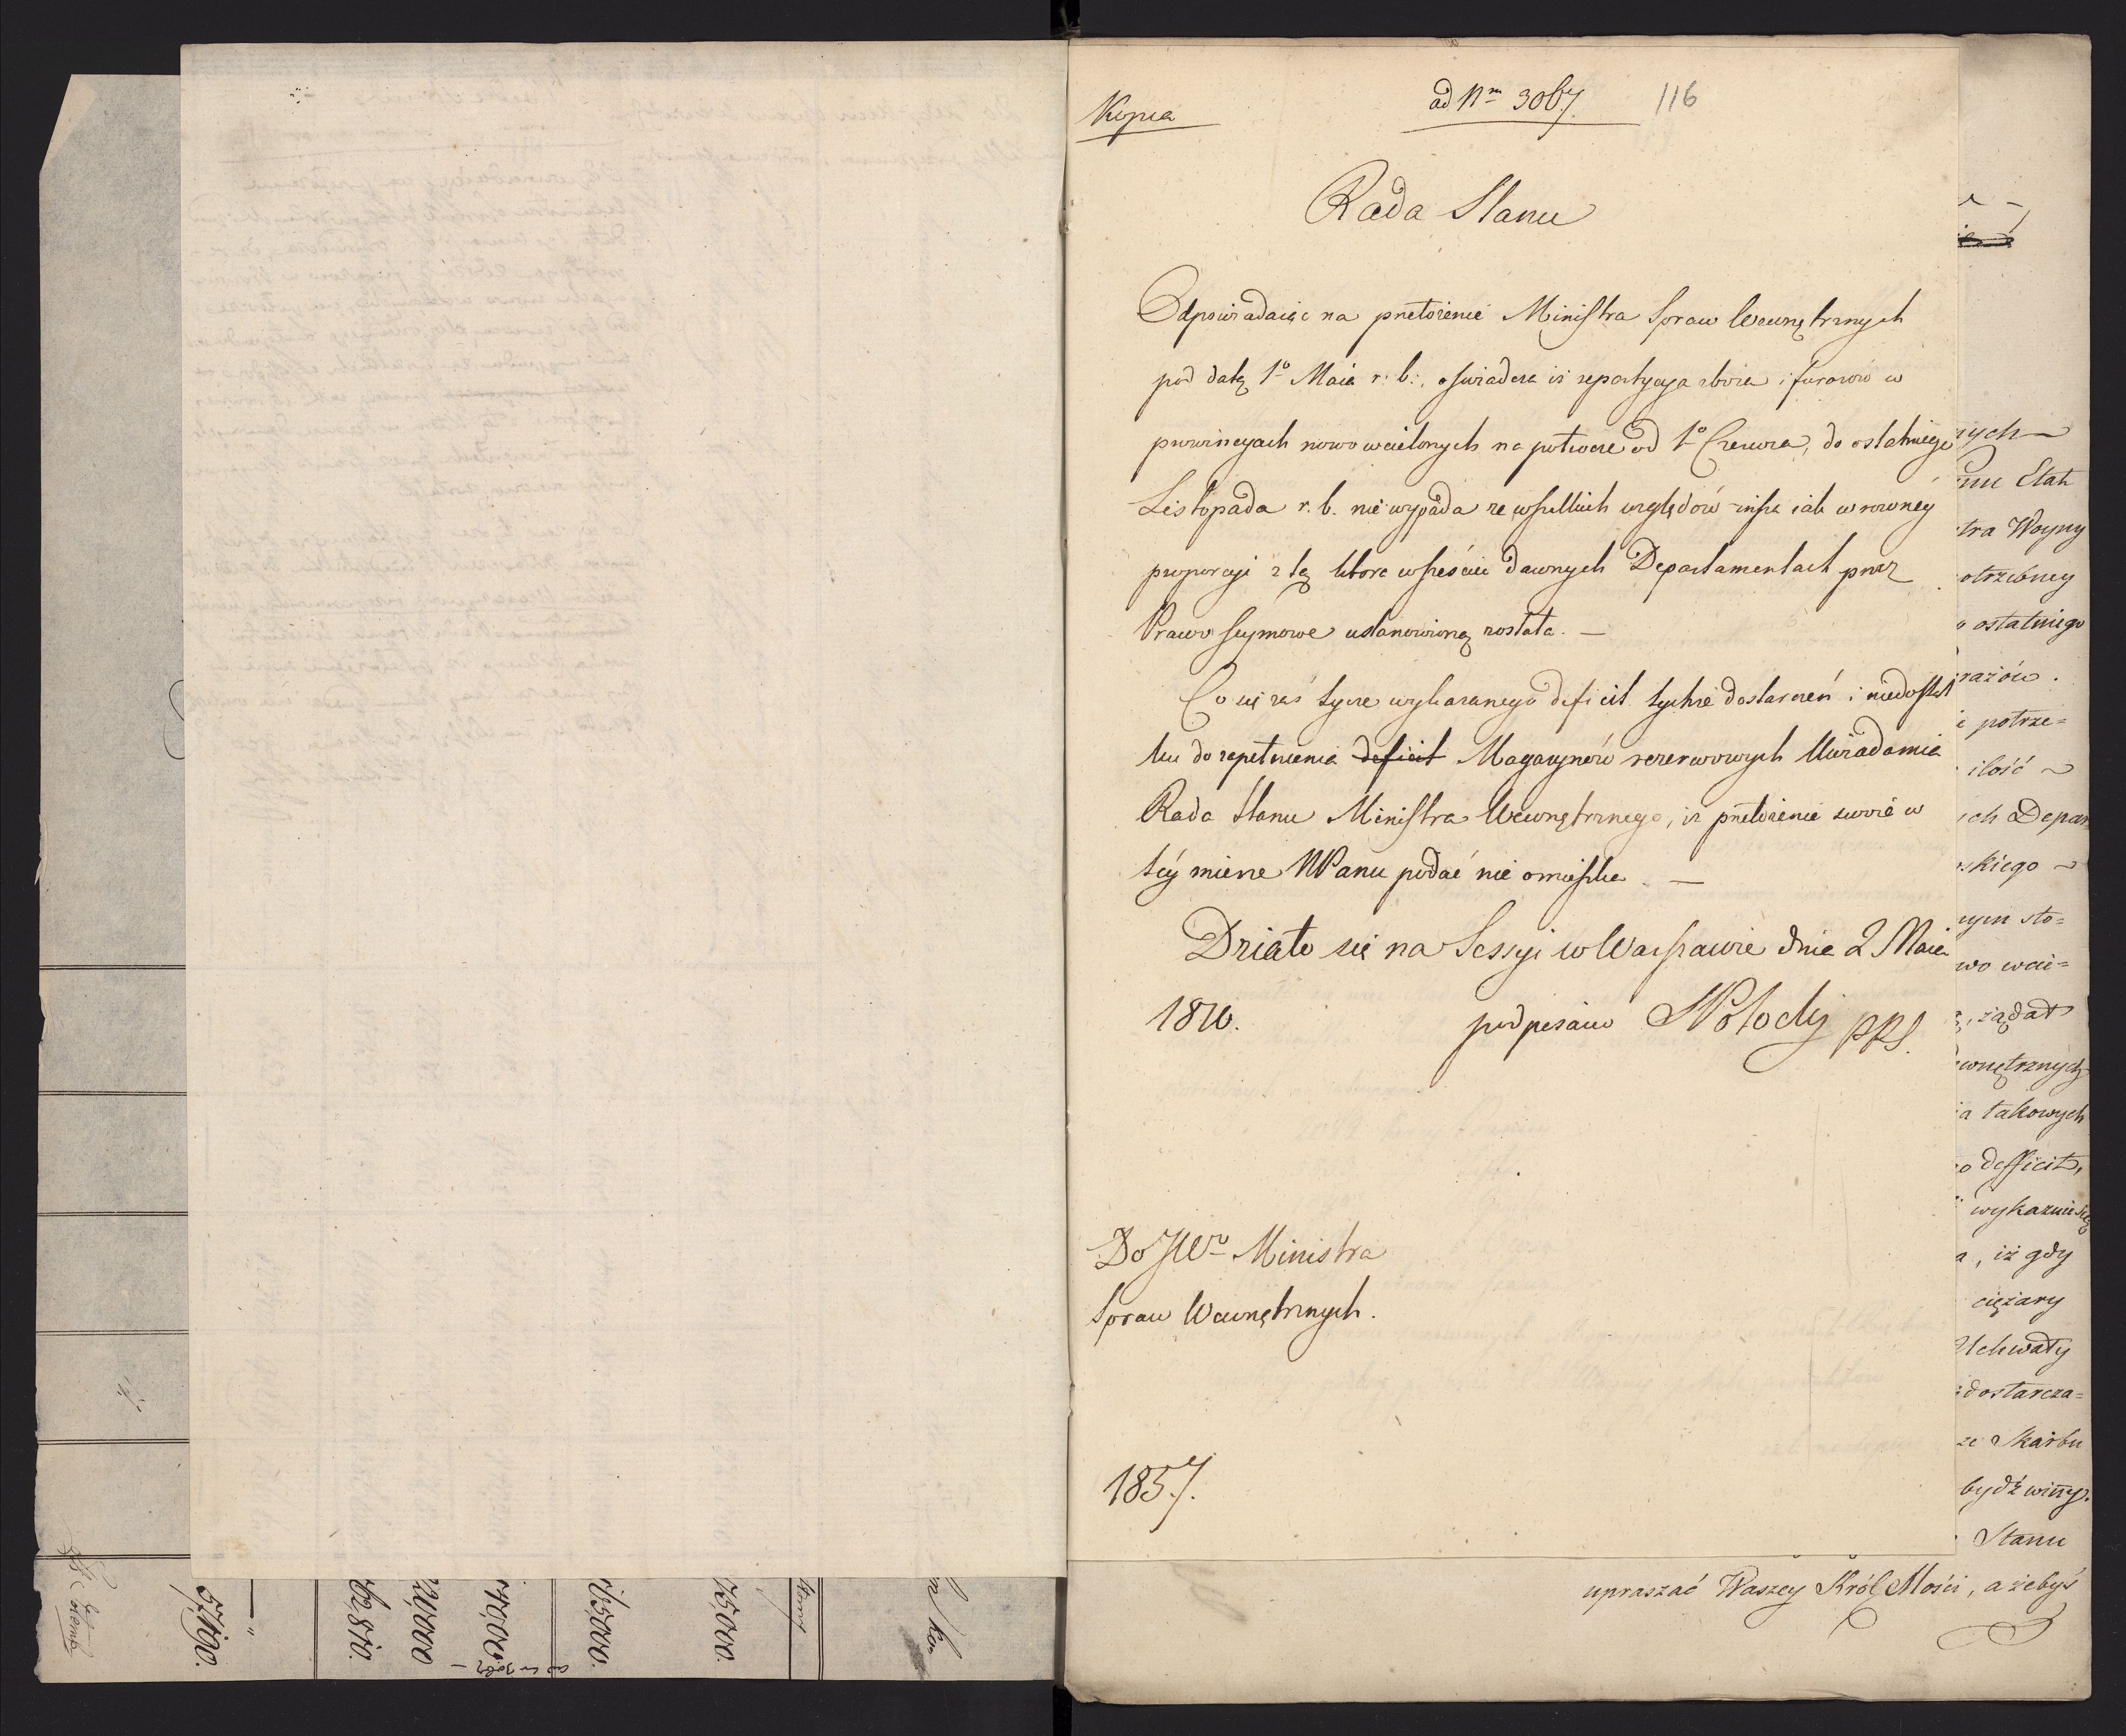 Kopia
ad Nm 3067. 116
Rada Stanu
Odpowiadaiąc na przełożenie Ministra Spraw Wewnętrznych
pod datą 1o Maia r: b:, oświadcza iż repartycya zboża i furażów w
prowincyach nowo wcielonych na półrocze od 1o Czerwca, do ostatniego
Listopada r. b. nie wypada ze wszelkich względów insza iak w rowney
proporcyi z tą która w sześciu dawnych Departamentach przez
Prawo seymowe ustanowioną została. —
Co się zaś tycze wykazanego deficit tychże dostarczeń i niedostat
ku do zapełnienia deficit Magazynów rezerwowych Uwiadamia
Rada Stanu Ministra Wewnętrznego, iż przełożenie swoie w
téy mierze NPanu podać nie omieszka. —
Działo się na Sessyi w Warszawie dnia 2 Maia
1810. podpisano SPotocki PRS.
Do JWo Ministra
Spraw Wewnętrznych.
1857.
nych
Etat
tra Woyny
otrzebney
o ostatniego
rażów.
e potrze=
ilość
ych Depar
skiego
nym sto=
wo wcie=
, żądał
ewnętrznych
ia takowych
o defficit,
wykazuie się
a, iż gdy
ciężary
Uchwały
dostarcza=
ze Skarbu
bydź winny.
Stanu
upraszać Waszey Król Mości, ażebyś
57,690.
62,810.
75,000.